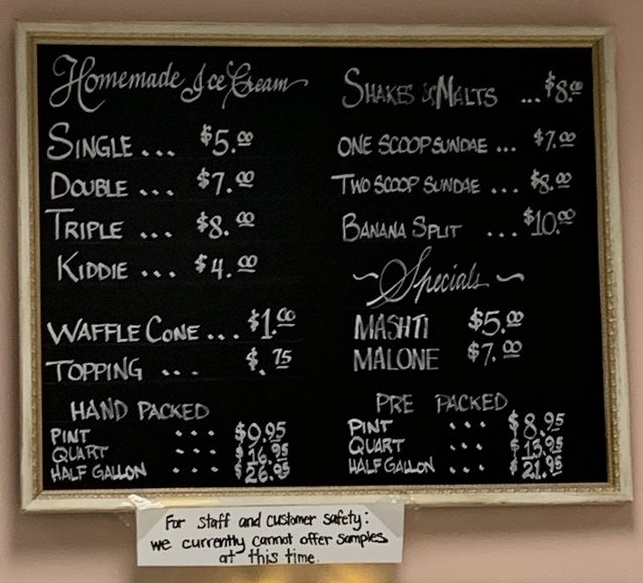 Homemade Ice Cream
SINGLE ... $5.00
DOUBLE ... $7.00
TRIPLE ... $8.00
KIDDIE ... $4.00
WAFFLE CONE ... $1.00
TOPPING ... $.75
HAND PACKED
PINT ... $9.95
QUART ... $16.95
HALF GALLON ... $26.95
SHAKES & MALTS ... $8.00
ONE SCOOP SUNDAE ... $7.00
TWO SCOOP SUNDAE ... $8.00
BANANA SPLIT ... $10.00
~Specials~
MASHTI $5.00
MALONE $7.00
PRE PACKED
PINT ... $8.95
QUART ... $13.95
HALF GALLON ... $21.95
For staff and customer safety:
we currently cannot offer samples
at this time.